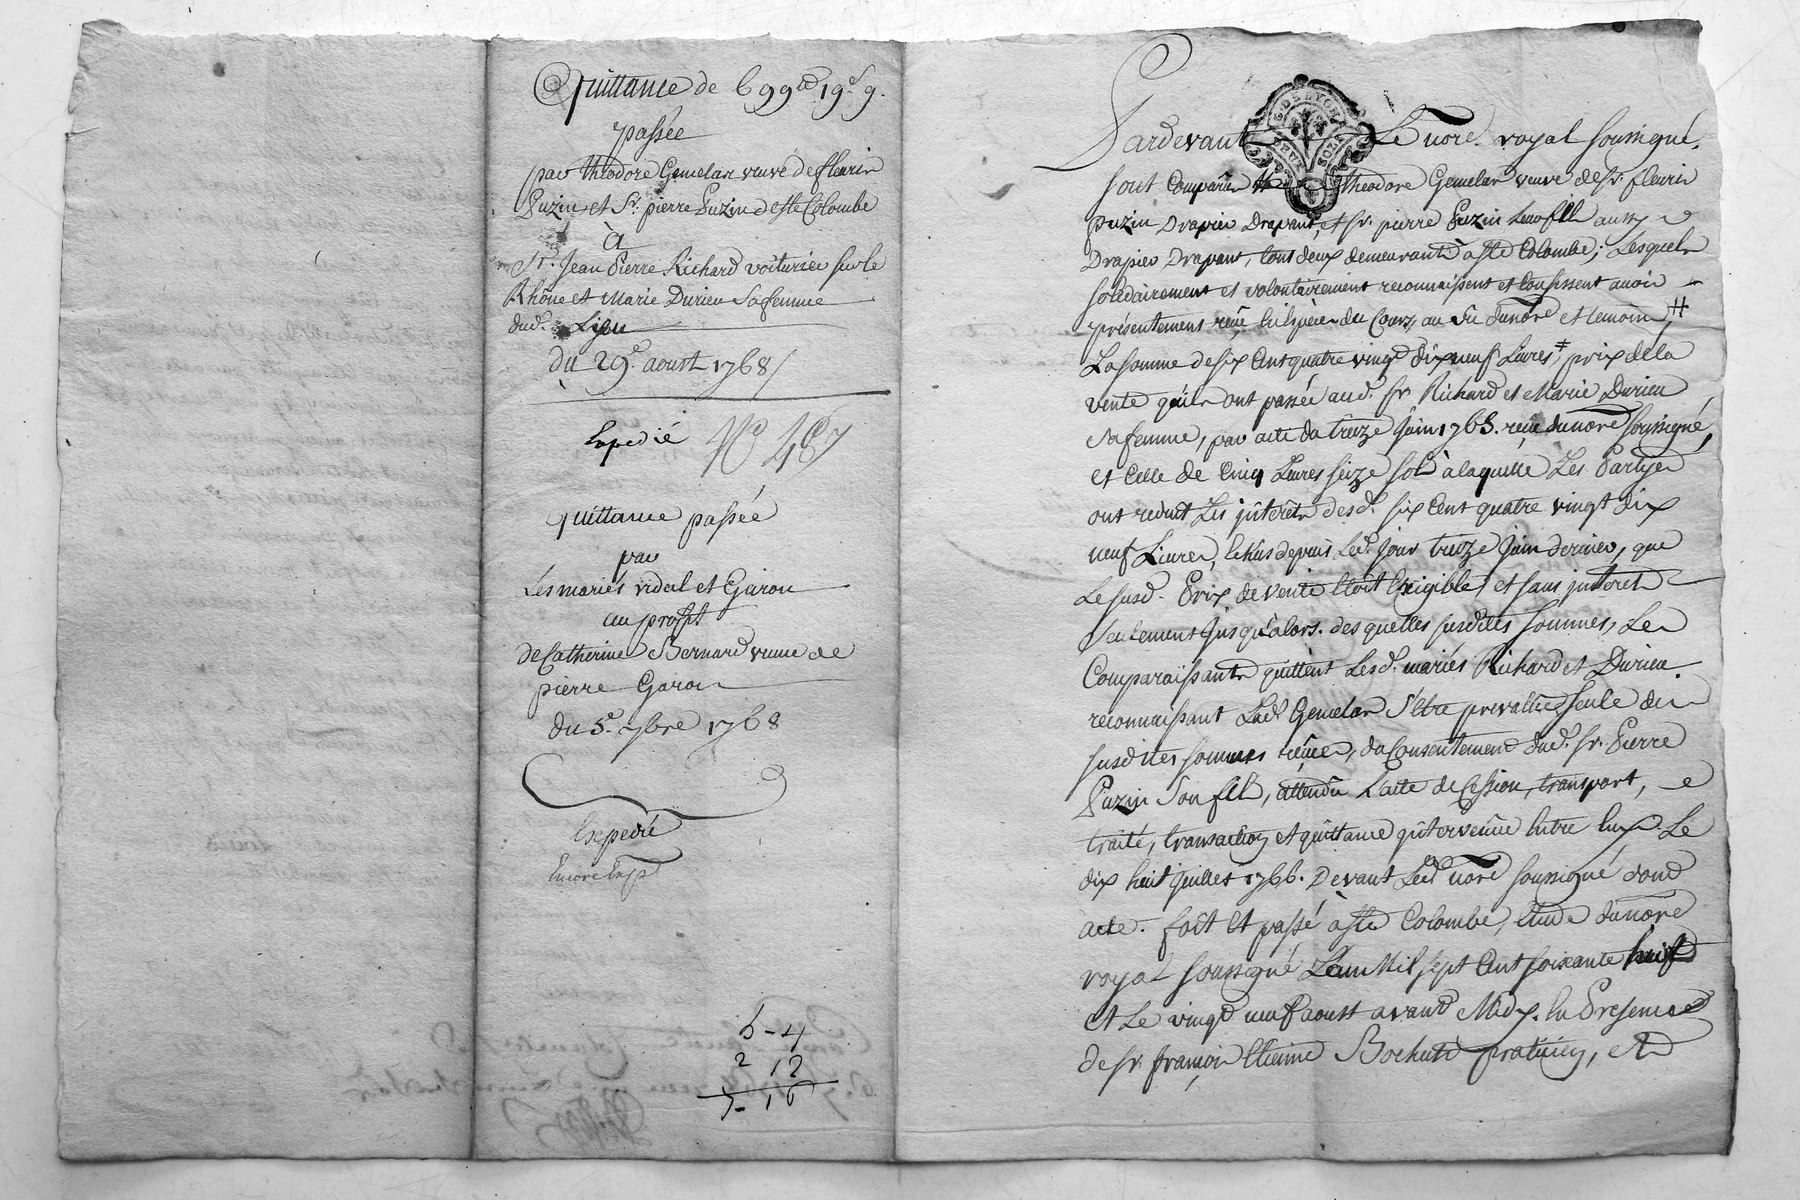 Quittance de 699tt 19s 9.
passée
par théodore Gemelas veuve de fleuris
Puzin et Sr. pierre Puzin de ste Colombe
à
Sr. Jean Pierre Richard voiturier sur le
Rhône et Marie Durieu Sa femme
dud. Lieu
du 29e. aoust 1768
Expedié No 467
quittance passée
par
Les mariés vidal et Garon
au profit
de Catherine Bernard veuve de
pierre Garon
du 5e. 7bre 1768
Expedié
Encore Exp
5 - 4
2 12
7 - 16
G. DE LYON
Pardevant Le nore. royal soussigné,
sont Comparus théodore Gemelas veuve de Sr. fleuris
Puzin Drapier Drapant, et Sr. pierre Puzin Leur fils aussy
Drapier Drapant, tous deux demeurants à ste Colombe; Lesquels
solidairement et volontairement reconnaissent et Confessent avoir
présentement reçû En Espèces du Cours, au vû du nore et temoins,
La somme de six Cent quatre vingt dix neuf Livres, prix de la
vente qu'ils ont passée aud. Sr. Richard et Marie Durieu
sa femme, par acte du treize Juin 1765. reçu du nore soussigné,
et Celle de Cinq Livres seize sols à laquelle Les Partyes
ont reduit Les jnterêts desd. six Cent quatre vingt dix
neuf Livres, Echûs depuis Led. Jour treize Juin dernier, que
Le susd. Prix de vente Etoit Exigible, et sans jnterêt
seulement jusqu'alors. desquelles susdites sommes, Les
Comparaissants quittent Lesd. mariés Richard et Durieu.
reconnaissant Lad. Gemelas s'être prevalüe seule des
susdites sommes reçües, du Consentement dud. Sr. Pierre
Puzin Son fils, attendu L'acte de Cession, transport,
traité, transaction et quittance jntervenüe Entre Eux Le
dix huit Juillet 1766. Devant Led. nore soussigné dont
acte. fait Et passé à ste Colombe, étude du nore
royal soussigné L'an Mil sept Cent soixante huit
et Le vingt neuf aoust avant Midy. En Presence
de Sr. françois Etienne Bochuti praticien, et